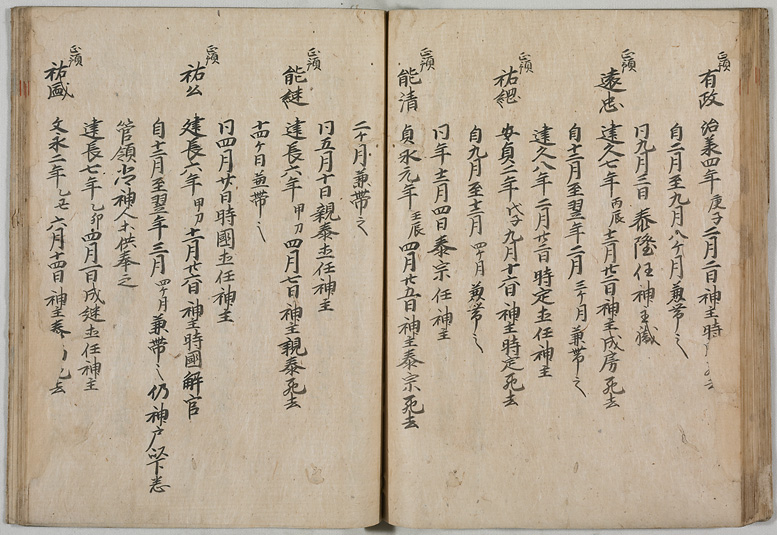 正預
有政 治承四年庚子二月二日神主時
自二月至九月八ケ月兼帯之
同九月三日泰隆任神主職
正預
遠忠 建久七年丙辰十二月廿二日神主成房死去
自十二月至翌年二月三ケ月兼帯之
建久八年二月廿二日時定任神主
正預
祐綱 安貞二年戊子九月十六日神主時定死去
自九月至十二月四ケ月兼帯之
同年十二月四日泰宗任神主
正預
能清 貞永元年壬辰四月廿五日神主泰宗死去
二ケ月兼帯之
同五月十日親泰任神主
正預
能継 建長六年甲刁四月七日神主親泰死去
十四ケ日兼帯之
同四月廿日時国任神主
正預
祐公 建長六年甲刁十二月廿二日神主時國解官
自十二月至翌年三月四ケ月兼帯之仍神戸以下悉
管領之神人等供奉之
建長七年乙卯四月一日成継任神主
正預
祐盛 文永二年乙丑六月十四日神主泰 死去